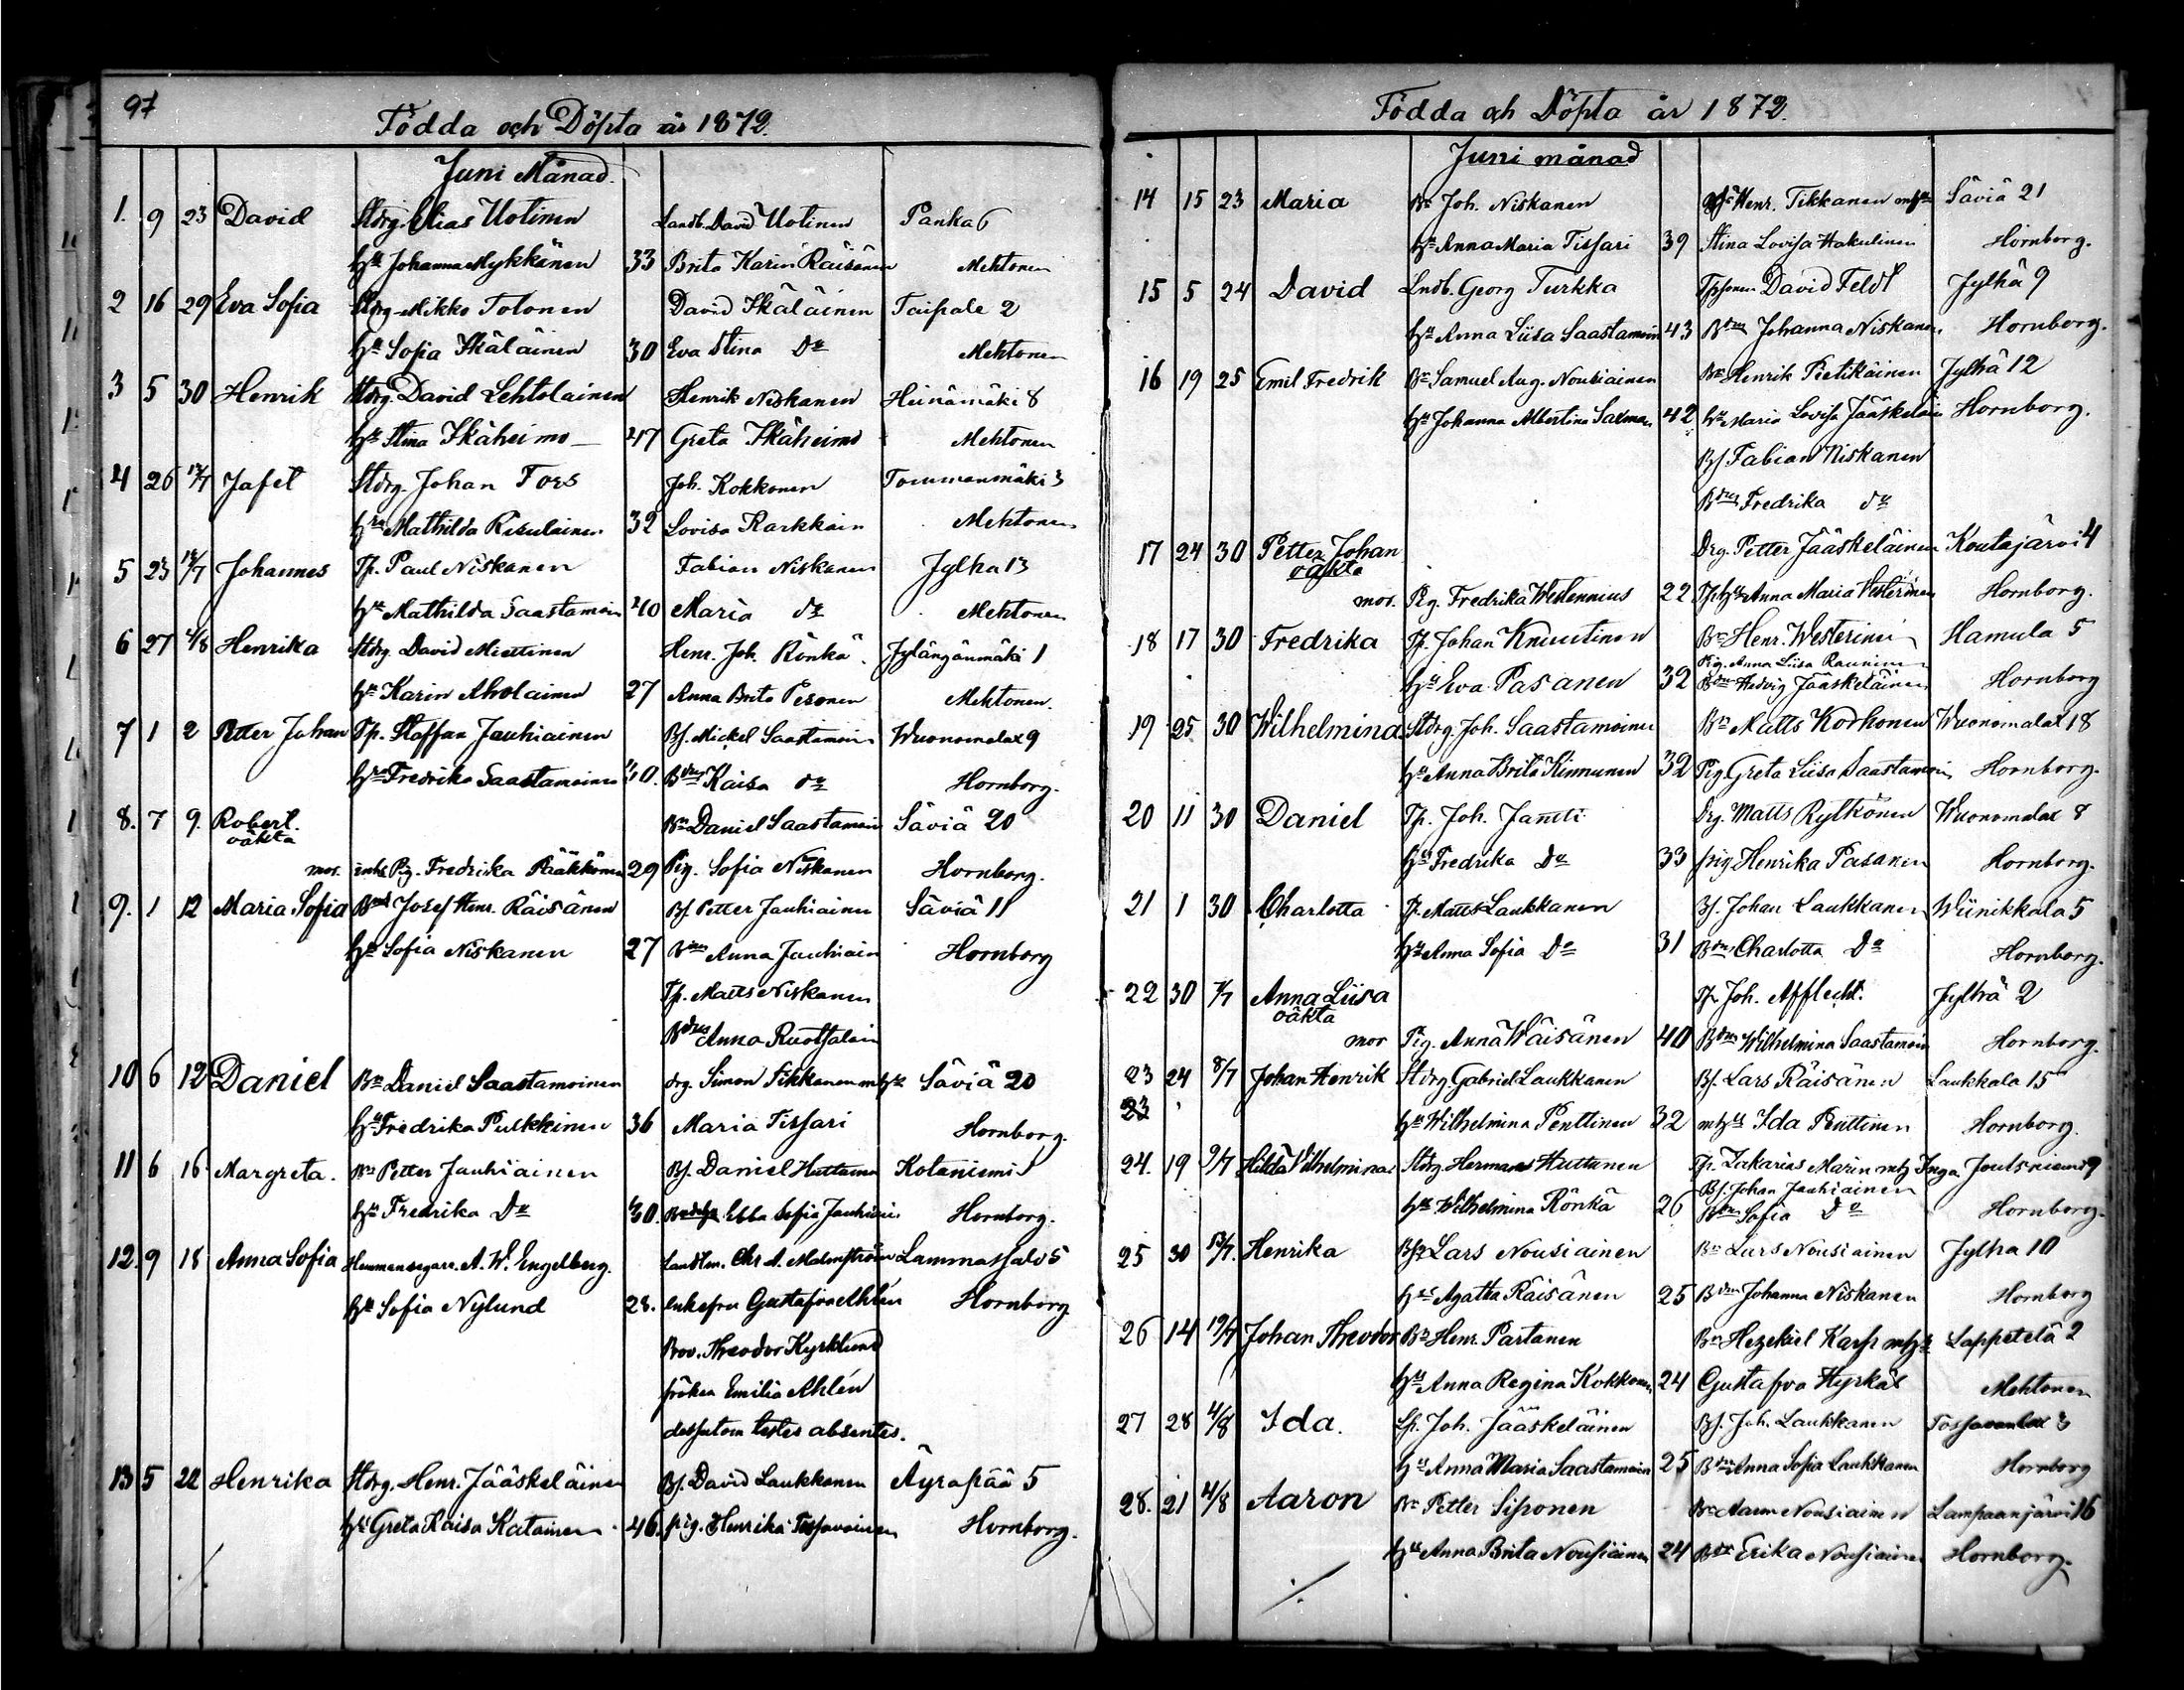 97
Födda och Döpta år 1872.
Juni Månad.
1. 9 23 David Stdrg. Elias Uotinen Landb. David Uotinen Panka 6
hu Johanna Mykkänen 33 Brita Karin Räisänen Mehtonen
2 16 29 Eva Sofia Stdrg. Mikko Tolonen David Ikäläinen Taipale 2
hu Sofia Ikäläinen 30 Eva Stina Do Mehtonen
3 5 30 Henrik Stdrg. David Lehtolainen Henrik Niskanen Heinämäki 8
hu Stina Ikäheimo 47 Greta Ikäheimo Mehtonen
4 26 Jafet Stdrg. Johan Fors Joh. Kokkonen Tommanmäki 3
hu Mathilda 32 Lovisa Karkkain Mehtonen
5 23 Johannes Tp. Paul Niskanen Fabian Niskanen Jylhä 13
hu Mathilda Saastamoin 40 Maria do Mehtonen
6 27 4/8 Henrika Stdrg. David Miettinen Henr. Joh. Rönkä Jylängänmäki 1
hu Karin Aholainen 27 Anna Brita Pesonen Mehtonen.
7 1 2 Petter Johan Tp. Staffan Jauhiainen Bs. Mickel Saastamoin Wuonamalax 9
hu Fredrika Saastamoinen 40. Bdr Kaisa do Hornborg.
8. 7 9. Robert. Bn Daniel Saastamoin Säviä 20
oäkta
mor. inhs Pig. Fredrika Pääkkönen 29 Pig. Sofia Niskanen Hornborg.
9. 1 12 Maria Sofia Bnd Josef Henr. Räisänen Bs. Petter Jauhiainen Säviä 11
hu Sofia Niskanen 27 Anna Jauhiain Hornborg
Tp. Matts Niskanen
Bdrs Anna Ruotsalain
10 6 12 Daniel Bn Daniel Saastamoinen drg. Simon Tikkanen m hu Säviä 20
hu Fredrika Pulkkinen 36 Maria Tissari Hornborg.
11 6 16 Margreta. Bn Petter Jauhiainen Bs. Daniel Huttunen Kotaniemi 1
hu Fredrika Do 30. Ebba Sofia Jauhiain Hornborg.
12. 9 18 Anna Sofia Hemmansegare. A. W. Engelberg. Landtm. Chr. A. Malmström Lammassalo 5
hu Sofia Nylund 28. enkefru Gustafva Ahlén Hornborg
Prov. Theodor Kyrklund
fröken Emilia Ahlén
dessutom testes absentes.
13 5 22 Henrika Stdrg. Henr. Jääskeläinen Bs. David Laukkanen Äyräpää 5
hu Greta Kaisa Katainen 46. pig. Henrika Tossavainen Hornborg.
Födda och Döpta år 1872.
Juni månad
14 15 23 Maria Bn Joh. Niskanen Henr. Tikkanen mhu Säviä 21
hu Anna Maria Tissari 39 Stina Lovisa Hakulinen Hornborg.
15 5 24 David Lndb. Georg Turkka David Feldt Jylhä 9
hu Anna Liisa Saastamoin 43 Bdrs Johanna Niskanen Hornborg.
16 19 25 Emil Fredrik Bn Samuel Aug. Nousiainen Bn Henrik Pietikäinen Jylhä 12
hu Johanna Albertina Saxman 42 hu Maria Lovisa Jääskeläin Hornborg.
Bs. Fabian Niskanen
Bdrs Fredrika do
17 24 30 Petter Johan Drg. Petter Jääskeläinen Koutajärvi 4
oäkta
mor. Pig. Fredrika Westennius 22 Tphu Anna Maria Vesterinen Hornborg.
18 17 30 Fredrika Tp. Johan Knuutinen Bn Henr. Westerinen Hamula 5
Pig. Anna Liisa Rauninen
hu Eva Pasanen 32 Bdrs Hedvig Jääskeläinen Hornborg
19 25 30 Wilhelmina Stdrg. Joh. Saastamoinen Bn Matts Korhonen Wuonamalax 18
hu Anna Brita Kinnunen 32 Pig. Greta Liisa Saastamoin Hornborg.
20 11 30 Daniel Tp. Joh. Jantti Drg. Matts Rytkönen Wuonamalax 8
hu Fredrika Do 33 pig Henrika Pasanen Hornborg.
21 1 30 Charlotta Tp. Matts Laukkanen Bs. Johan Laukkanen Wiinikkala 5
hu Anna Sofia Do 31 Bdrs Charlotta Do Hornborg.
22 30 7/7 Anna Liisa Tp. Joh. Afflecht. Jylhä 2
oäkta
mor Pig. Anna Wäisänen 40 Bdrs Wilhelmina Saastamoin Hornborg.
23 24 8/7 Johan Henrik Stdrg. Gabriel Laukkanen Bs. Lars Räisänen Laukkala 15
23 hu Wilhelmina Penttinen 32 mhu Ida Penttinen Hornborg.
24. 19 9/7 Hilda Vilhelmina Stdrg. Herman Huttunen Tp. Zakarias Marin mh Inga Joutsniemi 9
Bs. Johan Jauhiainen
hu Wilhelmina Rönkä 26 Bdrs Sofia Do Hornborg.
25 30 13/7. Henrika Bs. Lars Nousiainen Bn Lars Nousiainen Jylhä 10
hu Agatha Räisänen 25 Bdrs Johanna Niskanen Hornborg
26 14 19/7 Johan Theodor Bn Henr. Partanen Bn Hezekiel Karp mhu Lappetelä 2
hu Anna Regina Kokkonen 24 Gustafva Hyrkäs Mehtonen
27 28 4/8 Ida. Lp. Joh. Jääskeläinen Bs. Joh. Laukkanen Tossavanlax 3
hu Anna Maria Saastamoin 25 Bdrs Anna Sofia Laukkanen Hornborg
28. 21 4/8 Aaron Bn Petter Siponen Bn Aaron Nousiainen Lampaanjärvi 16
hu Anna Brita Nousiainen 24 Bdr Erika Nousiainen Hornborg.